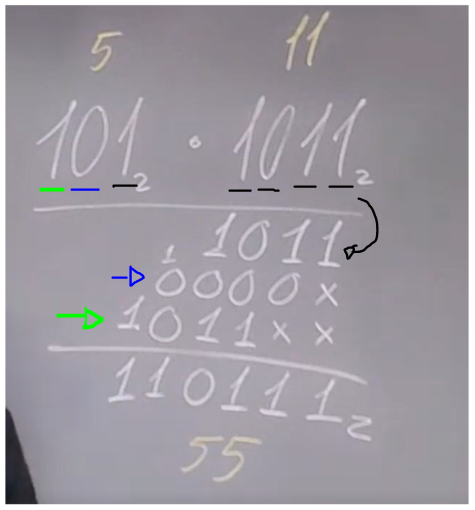 5 11
101₂ · 1011₂
1011
1
0000x
1011xx
110111₂
55